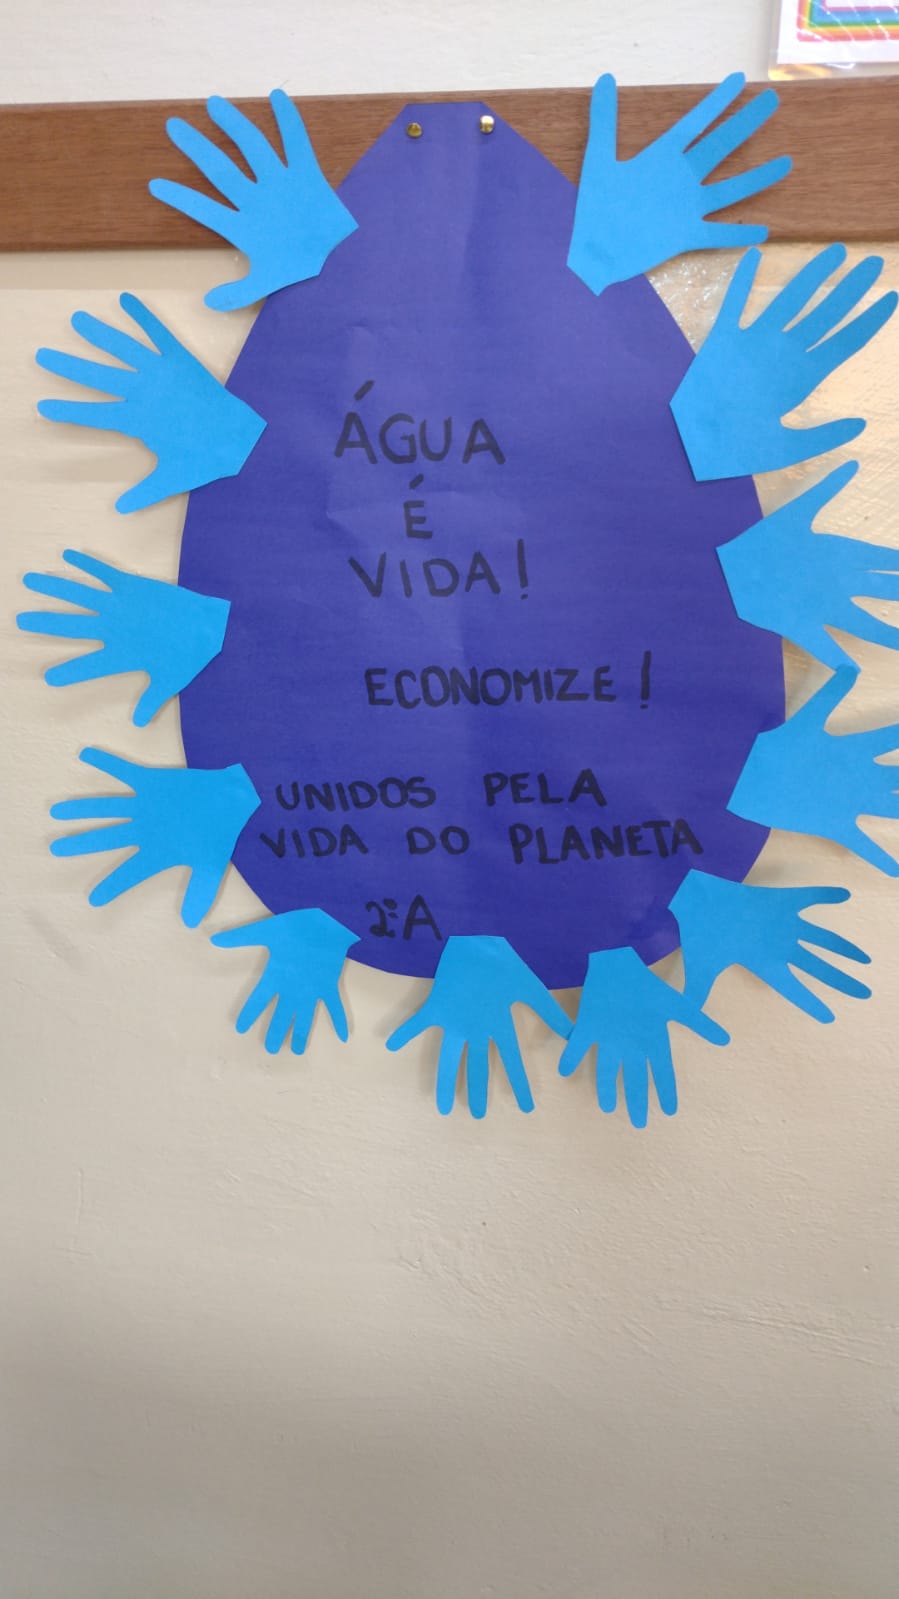 ÁGUA
É
VIDA!
ECONOMIZE!
UNIDOS PELA
VIDA DO PLANETA
2º A